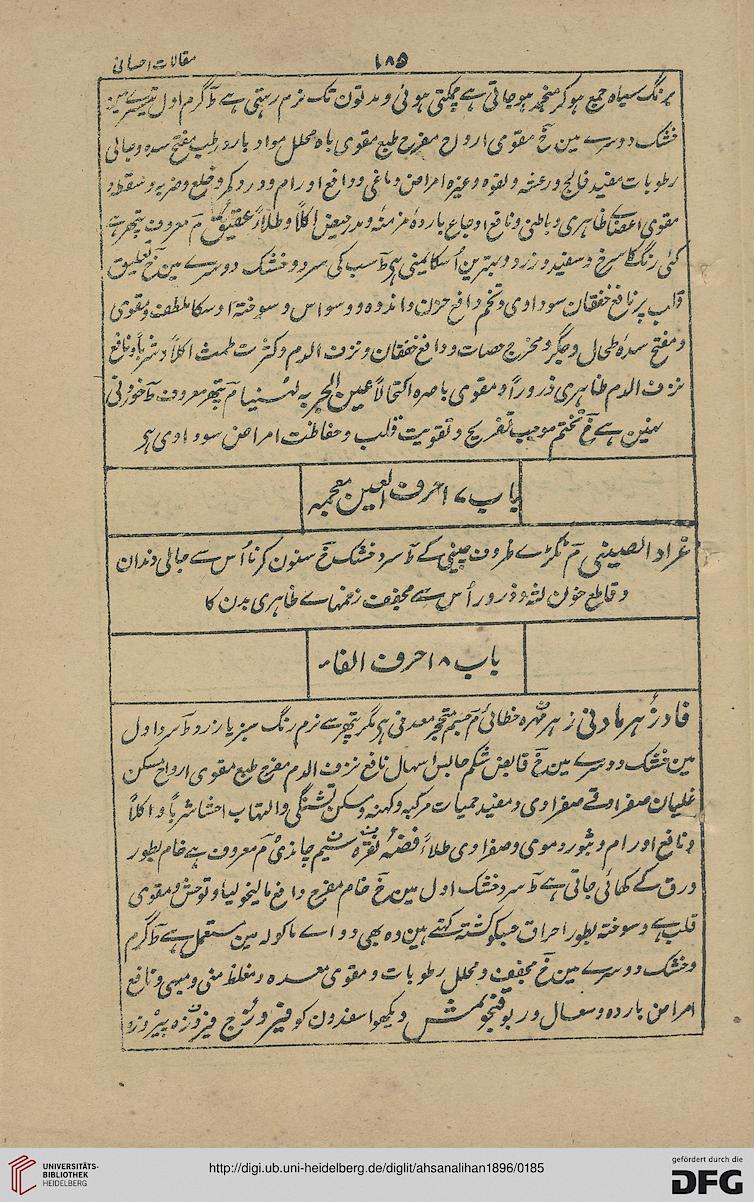 مقالات احسانی
۱۸۵
برنگ سیاہ جمع ہوکر منجمد ہوجاتی ہے چمکتی ہوئی و مدتون تک نرم رہتی ہے ط گرم اول تیسرے مین
خشک دوسرے مین خ مقوی ارواح مفرح طبع مقوی باہ محلل مواد بارد رطب مفتح سدہ وجالی
رطوبات مفید فالج و رعشہ و لقوہ وغیرہ امراض دماغی ودافع اورام و درد کمر و ضلع و ضربہ و سقطہ و
مقوی اعضاے ظاہری وباطنی ونافع اوجاع باردہ مزمنہ ومدر حیض اکلاً وطلاءً عقیق م معروف پتھر ہے
کئی رنگ کا سرخ و سفید و زرد و بہترین اُسکا یمنی ہی ط سب کی سرد و خشک دوسرے مین خ تعلیق
قلب پر نافع خفقان سوداوی و تختم دافع حزن واندوہ و وسواس و سوختہ اوسکا ملطف ومقوی
و مفتح سدہ طحال وجگر ومخرج حصات ودافع خفقان ونزف الدم وکثرت طمث اکلاً وشرباً ونافع
نزف الدم ظاہری ذروراً ومقوی باصرہ اکتحالاً عین الہر یہ لہسنیا م پتھر معروف ط خوردنی
نہین ہے خ تختم موجب تفریح وتقویت قلب وحفاظت امراض سوداوی ہی
باب ۱۷ حرف الغین معجمہ
غراد الصینی م ٹکڑے ظروف چینی کے ط سرد خشک خ سنون کرنا اُس سے جالی دندان
وقاطع خون لثہ وذرور اُس سے مجفف زخمہاے ظاہری بدن کا
باب ۱۸ حرف الفاء
فادزہر معدنی زہر مہرہ خطائی م جسم متحجر معدنی ہی مگر پتھر سے نرم رنگ سبز یا زرد ط سرد اول
مین خشک دوسرے مین خ قابض شکم حابس اسہال نافع نزف الدم مفرح طبع مقوی ارواح مسکن
غلیان صفرا و قے صفراوی ومفید حمیات مرکبہ وکہنہ ومسکن تشنگی والتہاب احشا شرباً واکلاً
ونافع اورام وبثور دموی وصفراوی طلاءً فضہ نقرہ سیم چاندی م معروف ہے خام بطور
ورق کے کھائی جاتی ہے ط سرد خشک اول مین خ خام مفرح دافع مالیخولیا وتوحش ومقوی
قلب ہے وسوختہ بطور احراق جسکو کشتہ کہتے ہین وہ بھی دواے ماکولہ مین مستعمل ہے ط گرم
وخشک دوسرے مین خ مجفف ومحلل رطوبات ومقوی معدہ ومغلظ منی ومبہی ونافع
امراض باردہ وسعال وربو دیکھو اسفدون کو فیروزج فیروزہ پیروزہ
UNIVERSITÄTS-
BIBLIOTHEK
HEIDELBERG
http://digi.ub.uni-heidelberg.de/diglit/ahsanalihan1896/0185
gefördert durch die
DFG